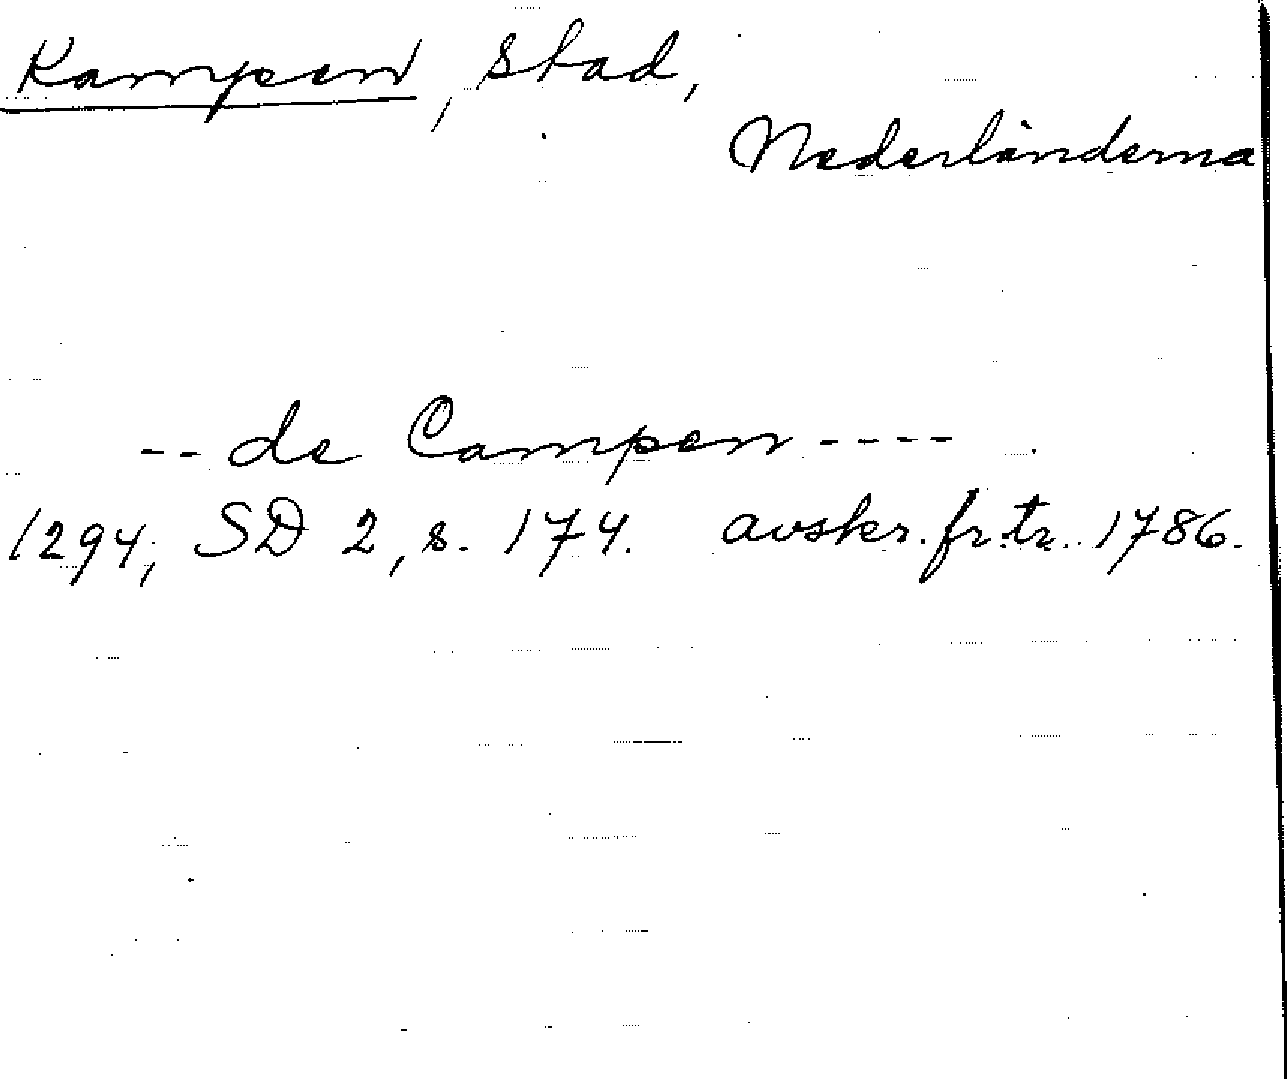 Kampen, stad,
Nederländerna
-- de Campen ----
1294, SD 2, s. 174. avskr. fr. tr. 1786.